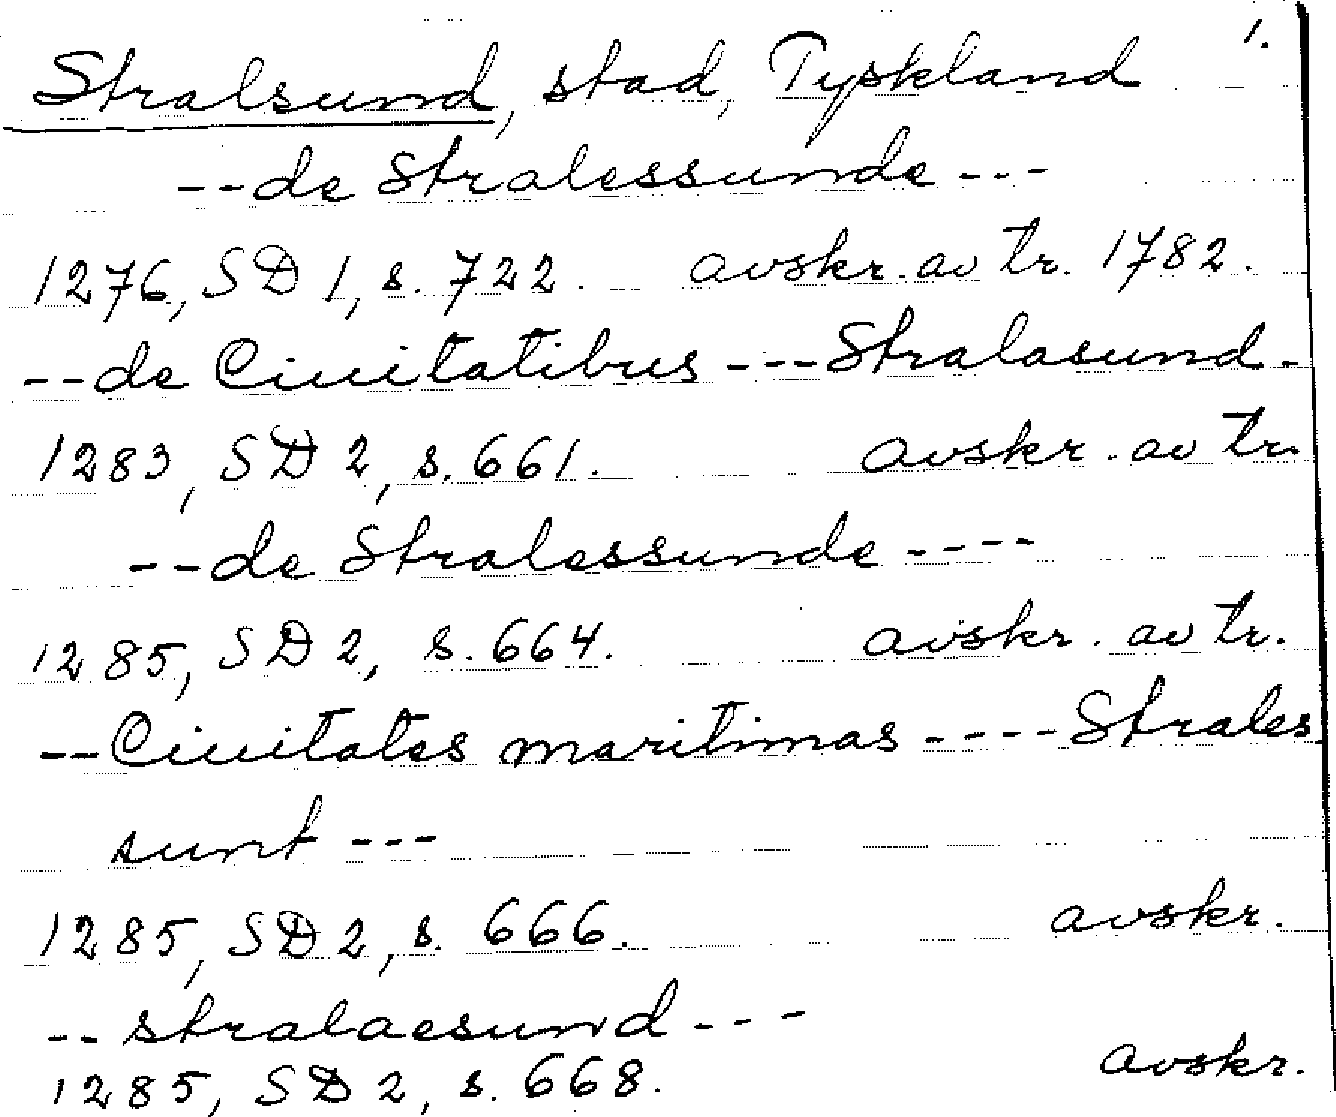 1.
Stralsund, stad, Tyskland
--de Stralessunde---
1276, SD 1, s. 722. avskr. av tr. 1782.
--de Ciuitatibus ---Stralasund-
1283, SD 2, s. 661. avskr. av tr.
--de Stralessunde----
1285, SD 2, s. 664. avskr. av tr.
--Ciuitates maritimas ----Strales
sunt ---
1285, SD 2, s. 666. avskr.
--stralaesund---
1285, SD 2, s. 668. avskr.